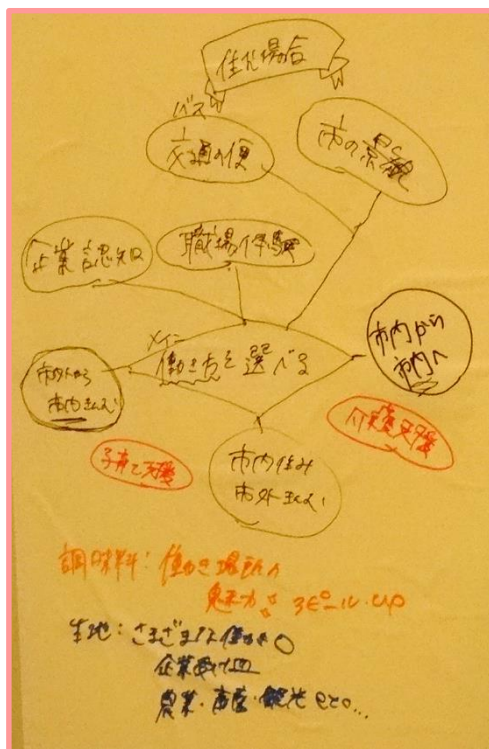 住む場合
バス
交通の便
市の景観
企業認知
職場体験
メイン
働き方を選べる
市内から
市内へ
市外から
市内
子育て支援
介護支援
市内住み
市外
調味料：働き場所
魅力 アピール・up
生地：さまざまな働き
企業
農業・商業・観光 etc...